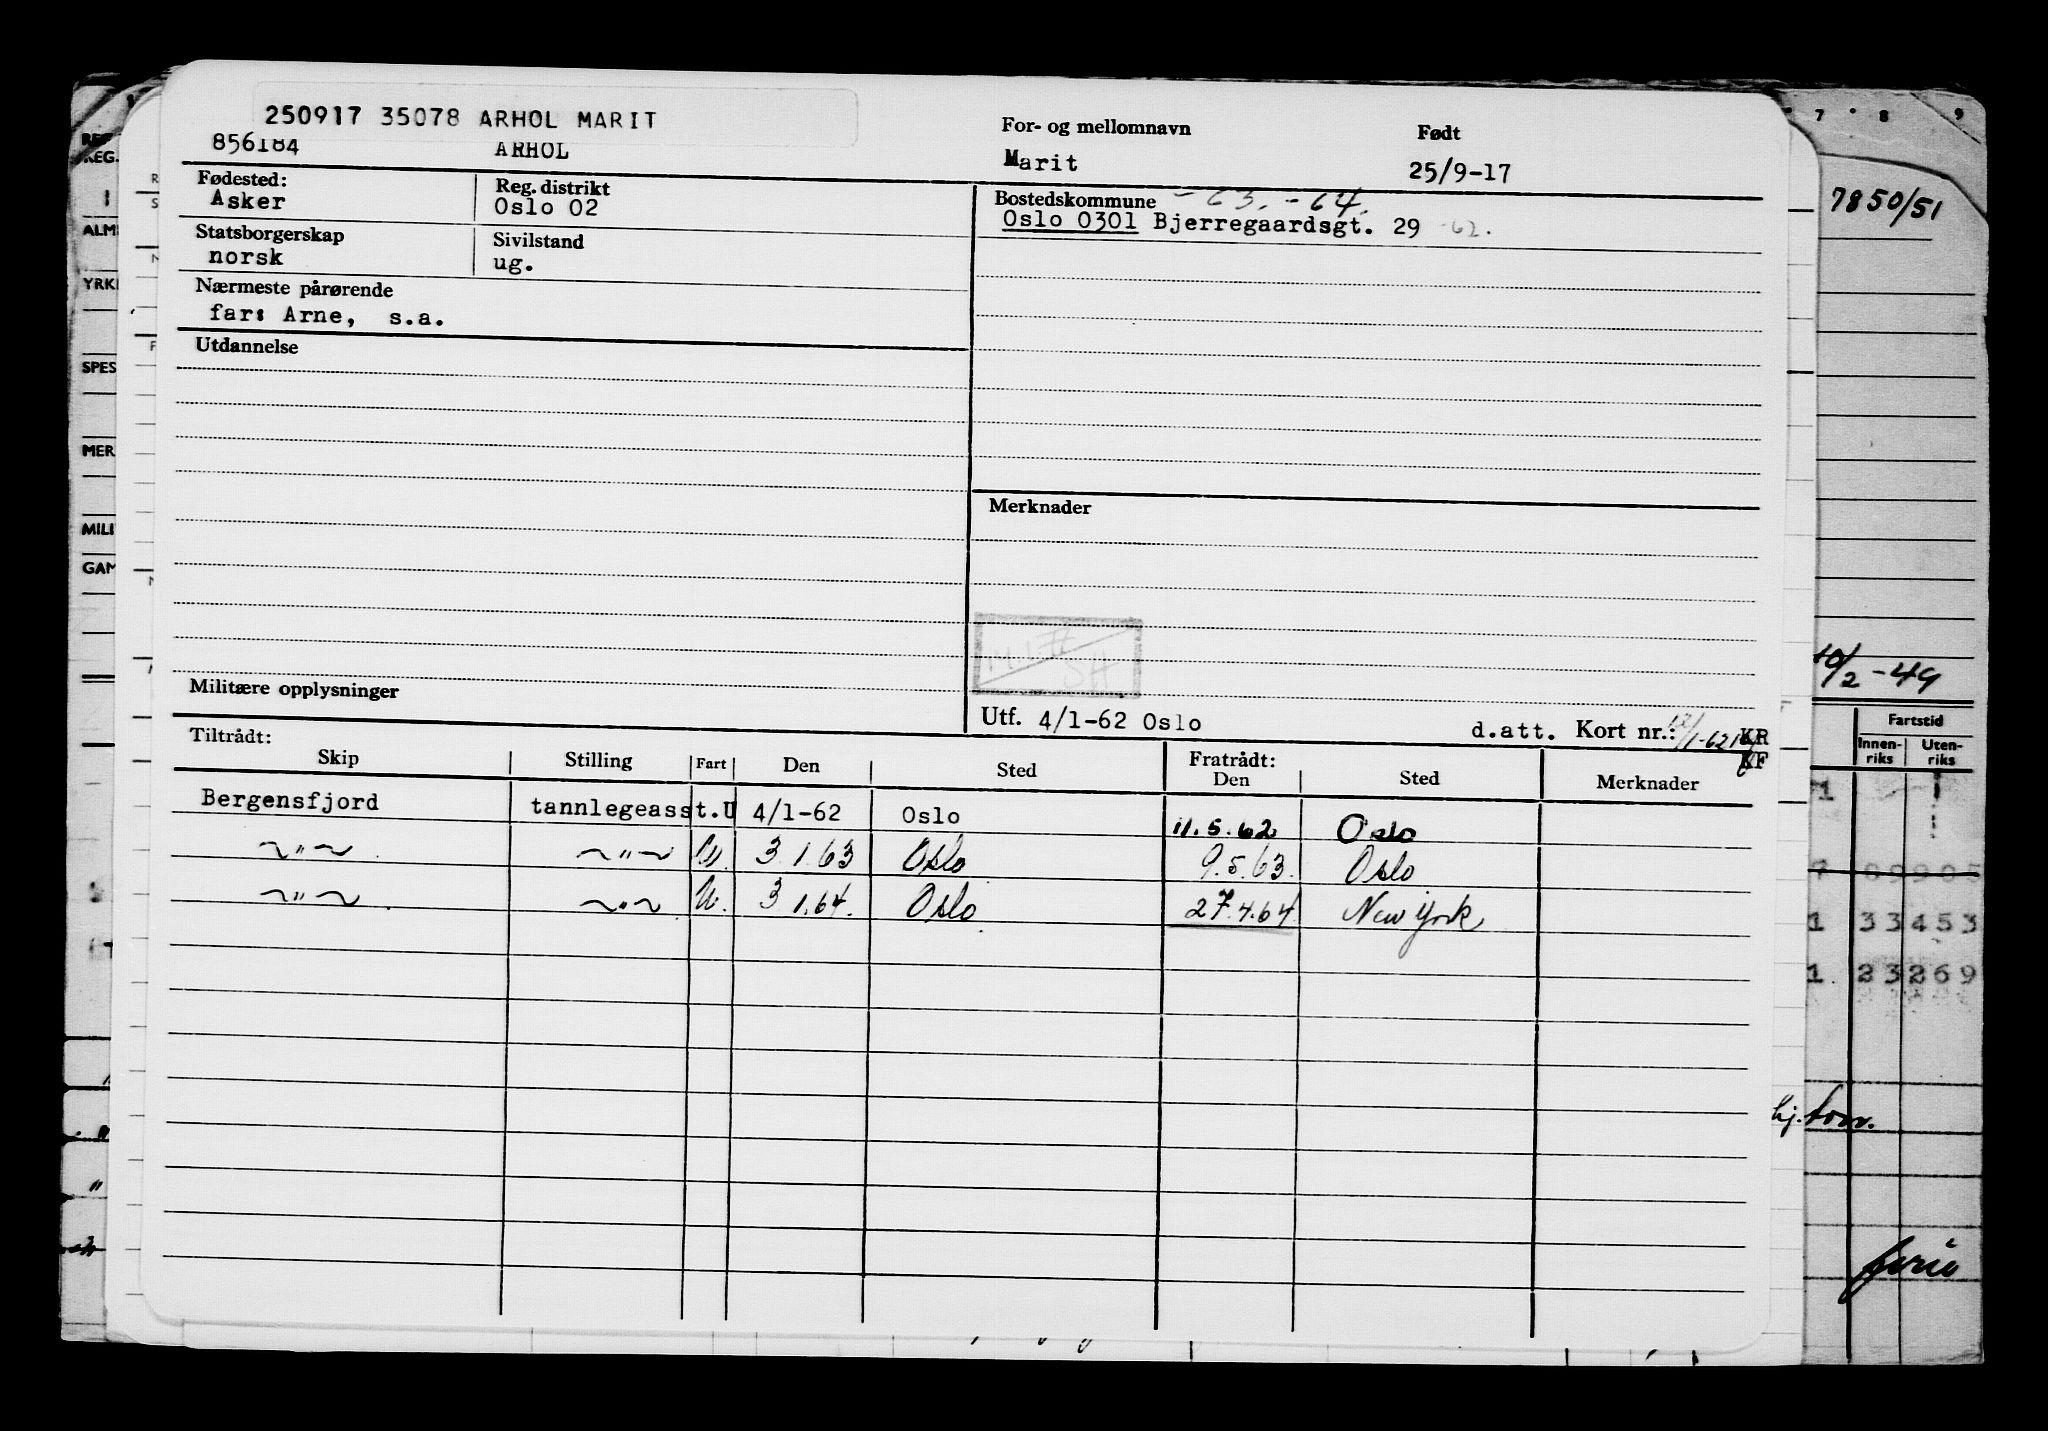 250917 35078 ARHOL MARIT
856184 ARHOL
For- og mellomnavn
Marit
Født
25/9-17
Fødested:
Asker
Reg. distrikt
Oslo 02
Bostedskommune -63.-64.
Oslo 0301 Bjerregaardsgt. 29 -62.
Statsborgerskap
norsk
Sivilstand
ug.
Nærmeste pårørende
far: Arne, s.a.
Utdannelse
Merknader
Militære opplysninger
Utf. 4/1-62 Oslo d.att. Kort nr.: KR
KF
Tiltrådt: Fratrådt:
Skip Stilling Fart Den Sted Den Sted Merknader
Bergensfjord tannlegeasst. U 4/1-62 Oslo 11.5.62 Oslo
~"~ ~"~ U. 3.1.63 Oslo 9.5.63. Oslo
~"~ ~"~ U. 3.1.64. Oslo 27.4.64 New York
7 8 9
7850/51
10/2-49
Fartstid
Innen-riks Uten-riks
1 33453
1. 23269
hj. tom.
ALM
YRK
SPES
MER
MILI
GAM